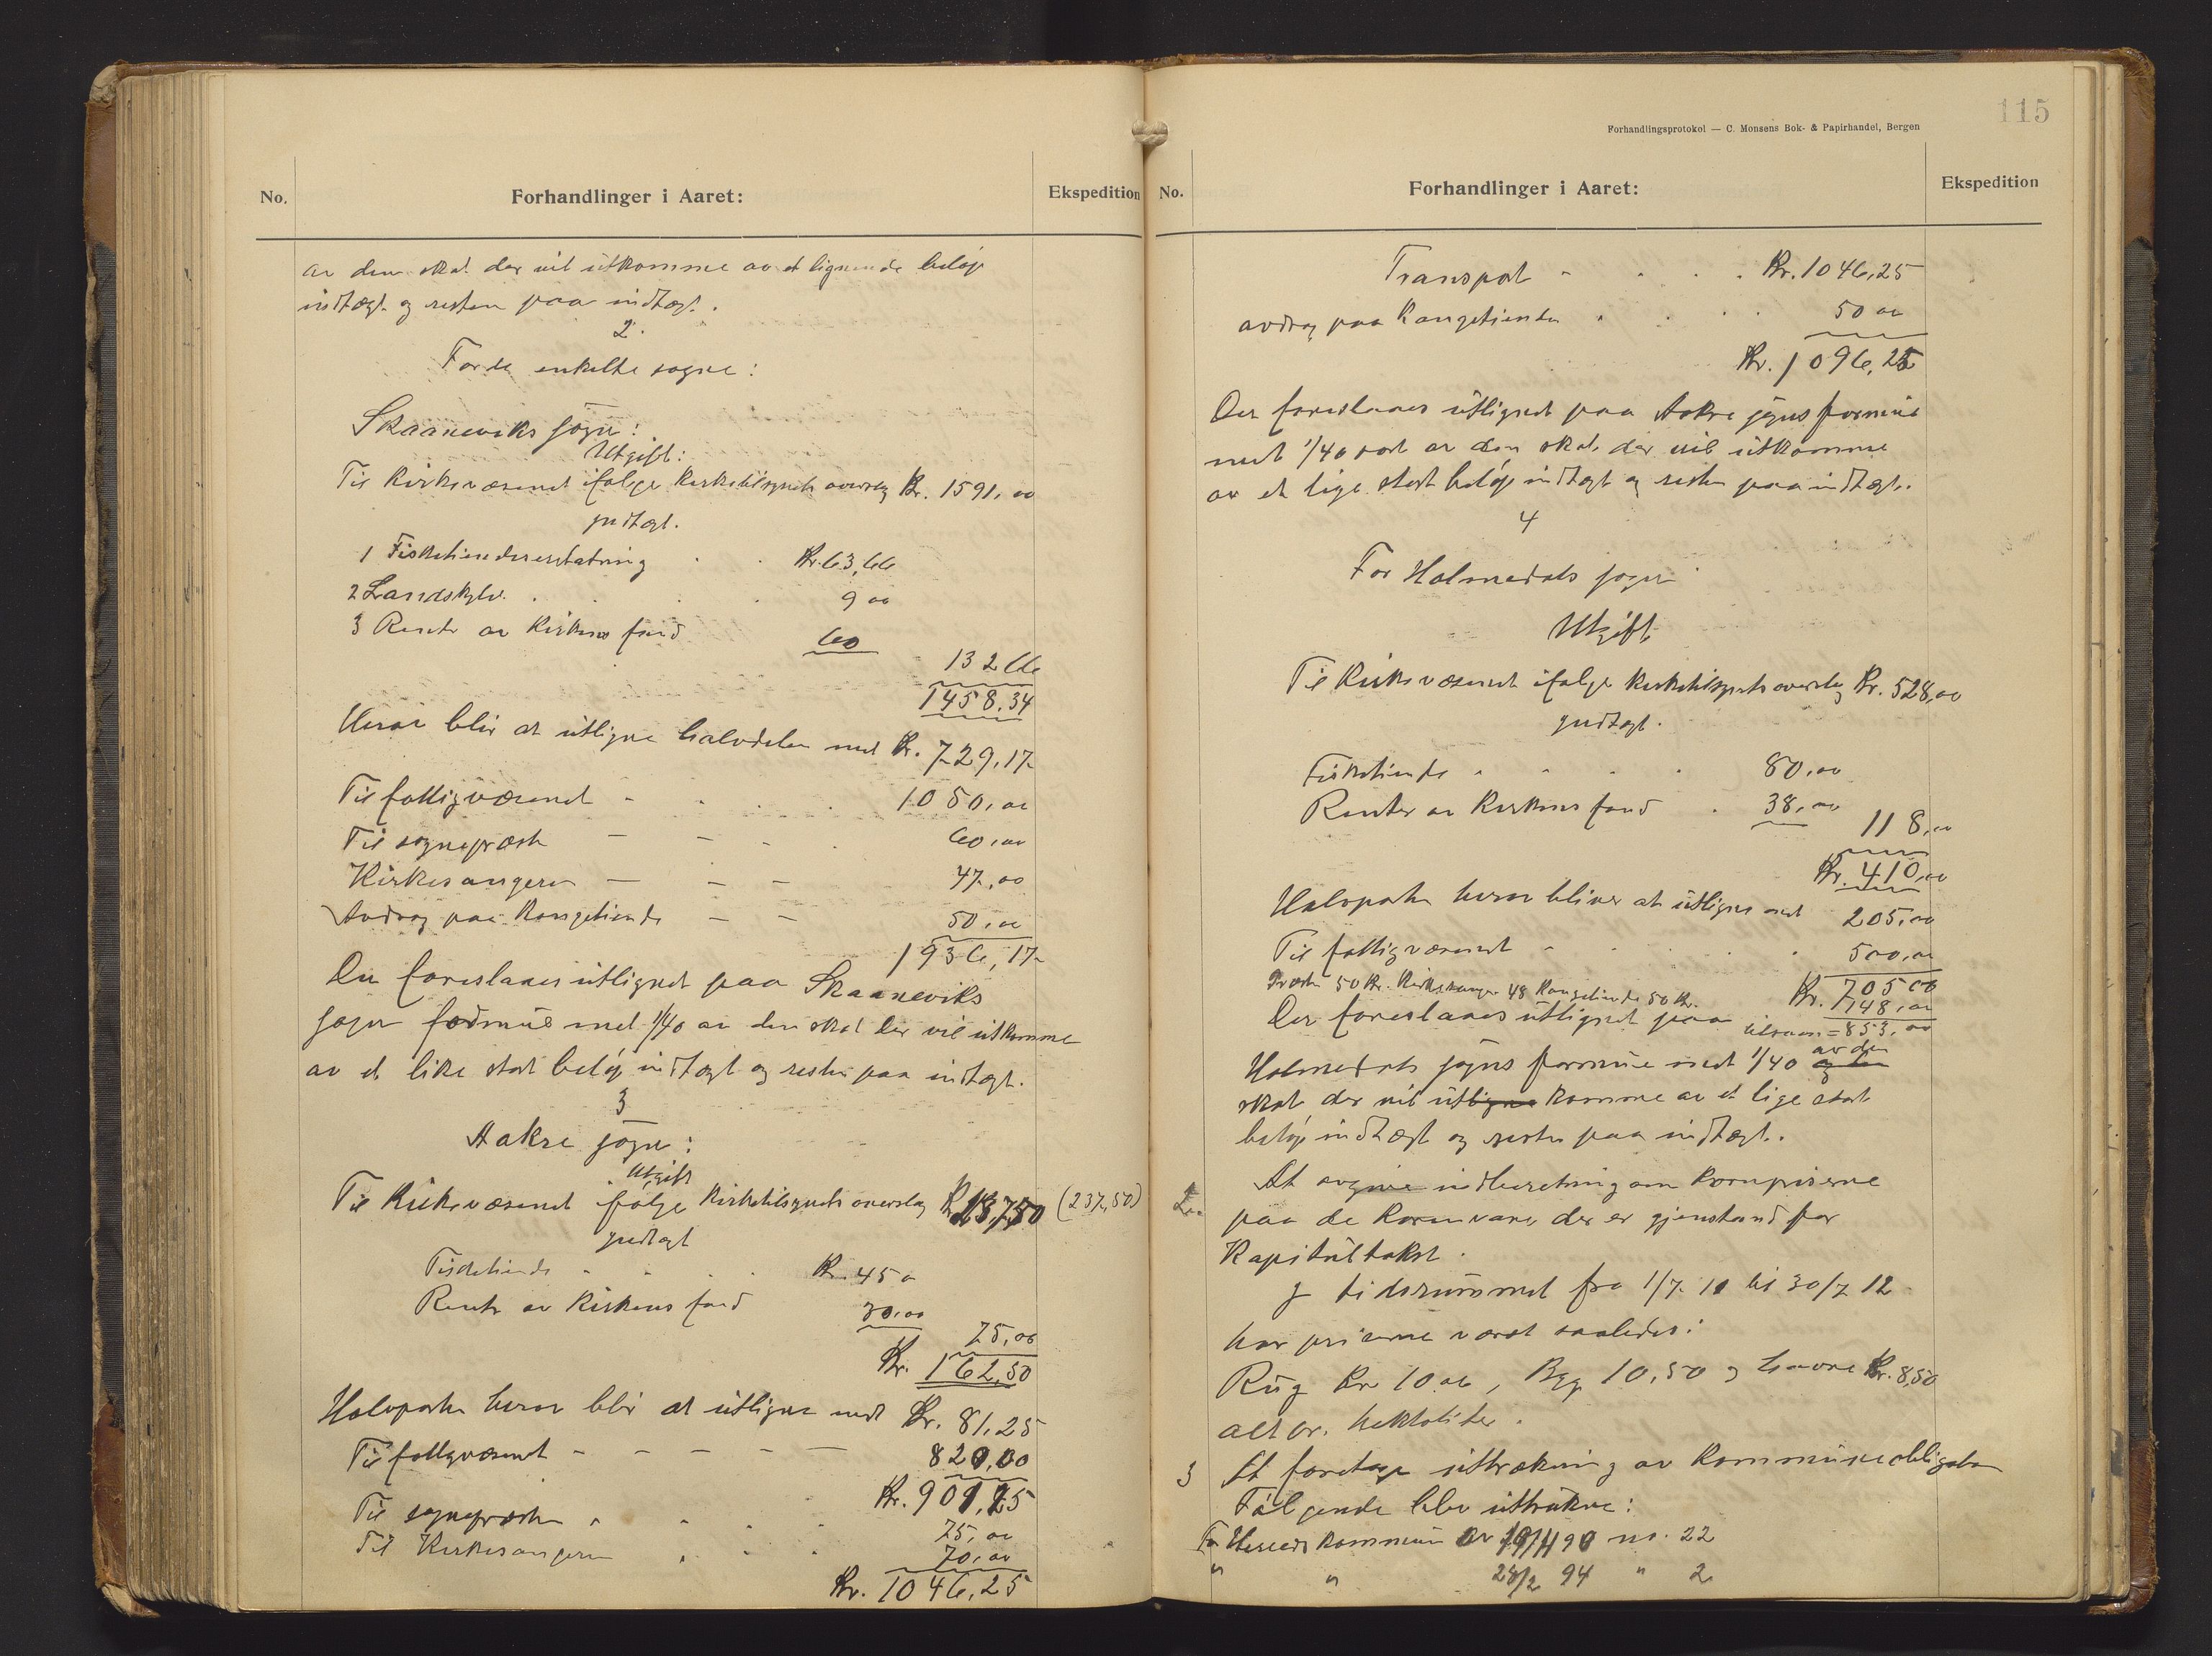 No.
Forhandlinger i Aaret:
Ekspedition
av den skat der vil utkomme av et lignende beløp
indtægt og resten paa indtægt.
2.
For de enkelte sogne:
Skaaneviks sogn:
Utgift:
Til Kirkevæsenet ifølge Kirketilsynets overslag Kr. 1591,00
Indtægt.
1 Fisketiendeerstatning Kr. 63,66
2 Landskyld 9 00
3 Rente av Kirkens fond 60
132 66
1458,34
Herav blir at utligne halvdelen med Kr. 729,17
Til fattigvæsenet 1050,00
Til sogneprest 60,00
Kirkesangeren 47,00
Avdrag paa Kongetiende 50,00
1936,17
Der foreslaaes utlignet paa Skaaneviks
sogn formue med 1/40 av den skat der vil utkomme
av et like stort beløp indtægt og resten paa indtægt.
3
Aakre sogn:
Utgift
Til Kirkevæsenet ifølge Kirketilsynets overslag Kr. 237,50 (237,50)
Indtægt
Fisketiende Kr. 45 0
Rente av Kirkens fond 30,00
75,00
Kr. 162,50
Halvparten herav blir at utligne med Kr. 81,25
Til fattigvæsenet 820,00
Kr. 901,25
Til sognepresten 75,00
Til Kirkesangeren 70,00
Kr. 1046,25
115
Forhandlingsprotokol — C. Monsens Bok- & Papirhandel, Bergen
No.
Forhandlinger i Aaret:
Ekspedition
Transport Kr. 1046,25
avdrag paa Kongetiende 50 00
Kr. 1096,25
Der foreslaaes utlignet paa Aakre sogns formue
med 1/40 part av den skat der vil utkomme
av et lige stort beløp indtægt og resten paa indtægt.
4
For Holmedals sogn
Utgift
Til Kirkevæsenet ifølge Kirketilsynets overslag Kr. 528,00
Indtægt.
Fisketiende 80,00
Renter av Kirkens fond 38,00
118,00
Kr. 410,00
Halvparten herav bliver at utligne med 205,00
Til fattigvæsenet 500,00
Kr. 705 00
Presten 50 Kr. Kirkesanger 48 Kongetiende 50 Kr. 148,00
Der foreslaaes utlignet paa tilsam = 853,00
Holmedals sogns formue med 1/40 av den
skat der vil utligne komme av et lige stort
beløp indtægt og resten paa indtægt.
2. At avgive indberetning om Kornpriserne
paa de Kornvarer der er gjenstand for
Kapitultakst.
I tidsrummet fra 1/7 11 til 30/7 12
har priserne været saaledes:
Rug Kr 10 00, Byg 10,50 og havre Kr. 8,50
alt pr. hektoliter.
3 At foretage uttrækning av Kommuneobligation
Følgende blev uttrukne:
For Herreds Kommun av 19/11 90 no. 22
" " 28/2 94 " 2